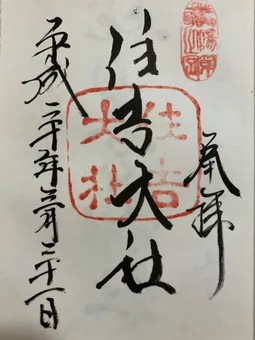 奉拝
住吉大社
平成二十年 月 十一日
住吉大社